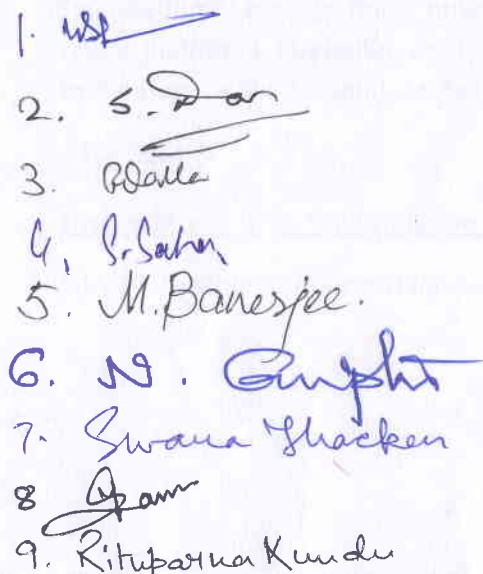 1.
2. S. Dan
3. BDatta
4, S. Saha,
5. M. Banerjee.
6. N. Gupta
7. Swana Thacker
8
9. Rituparna Kundu